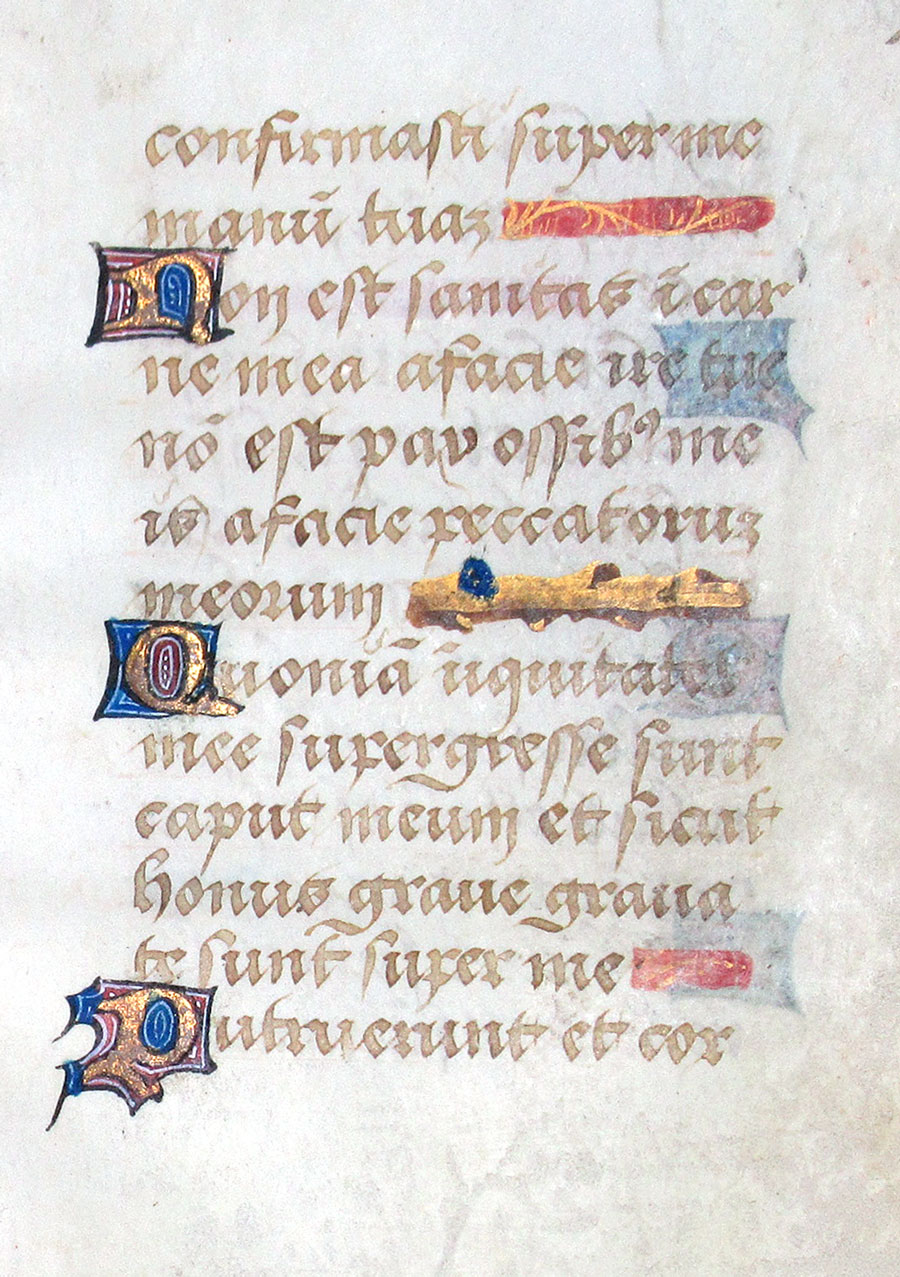 confirmasti super me
manū tuaz
Non est sanitas ī car
ne mea afacie ire tue
nō est pax ossibꝰ me
is afacie peccatoruz
meorum
Quoniā īiquitates
mee supergresse sunt
caput meum et sicut
honus graue graua
te sunt super me
Putruerunt et cor